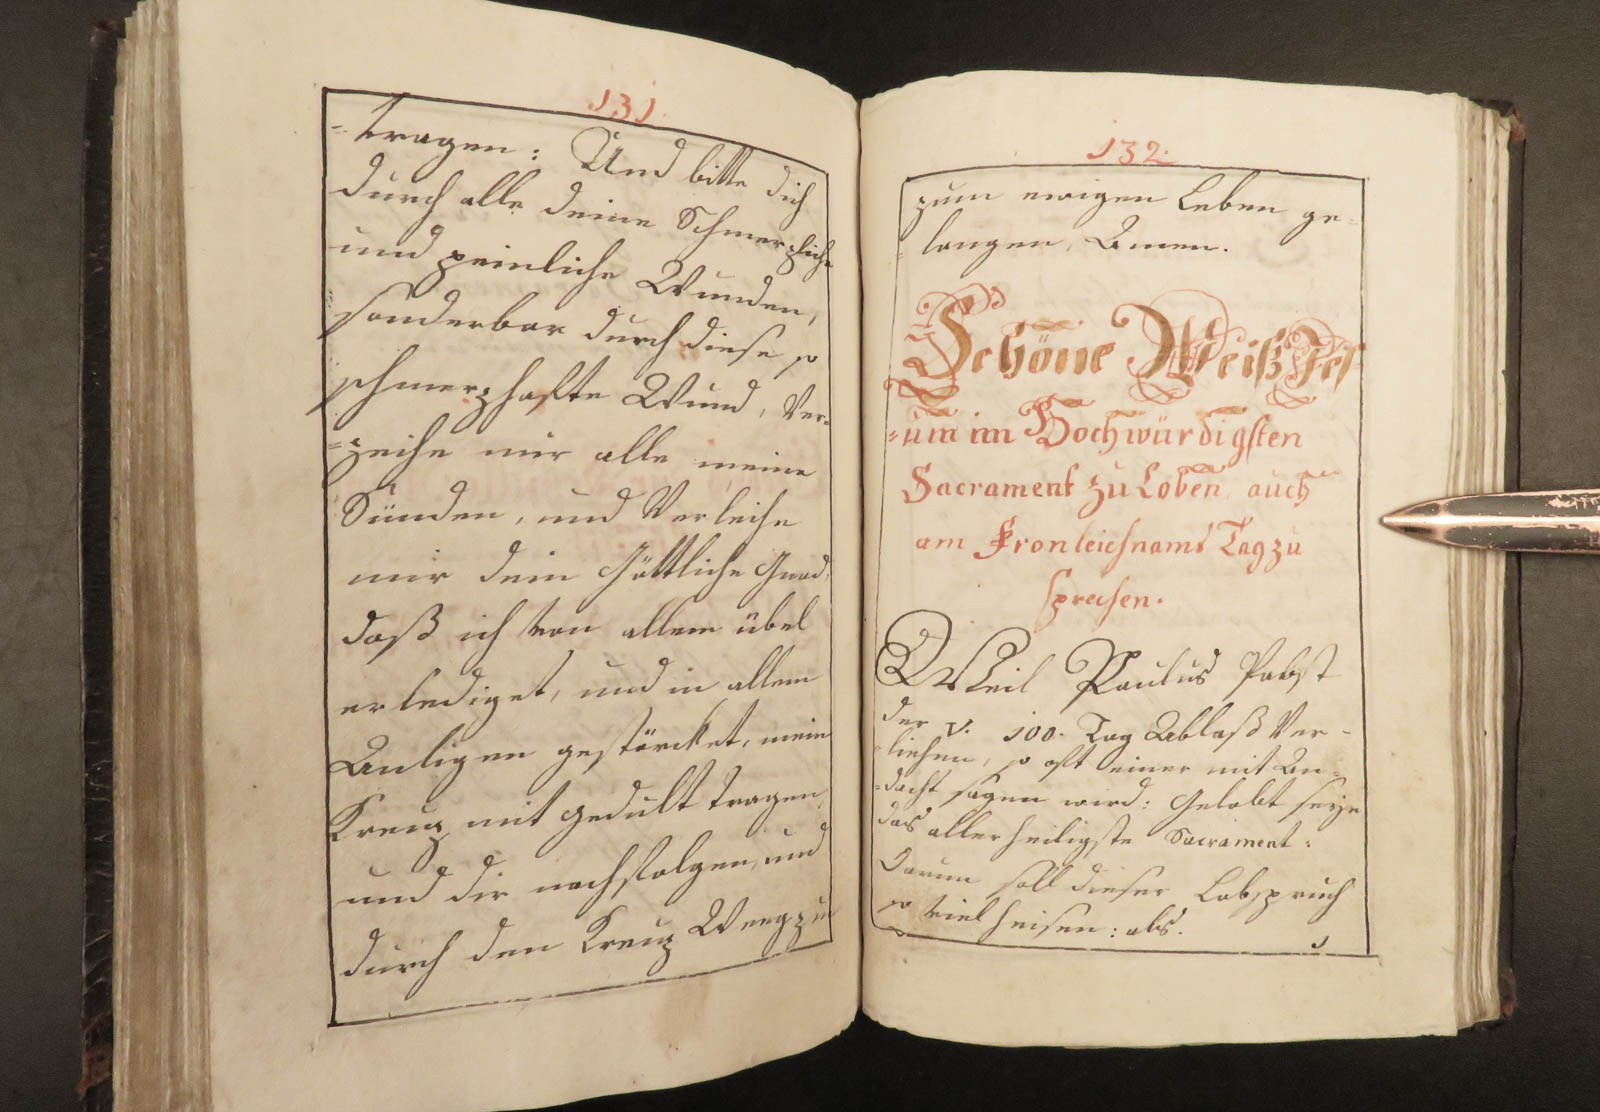 131.
=tragen: Und bitte dich
durch alle deine Schmerzliche
und peinliche Wunden,
sonderbar durch diese so
schmerzhafte Wund, Ver=
=zeihe mir alle meine
Sünden, und Verleihe
mir dein Göttliche Gnad,
daß ich von allem übel
erlediget, und in allem
Anligen gestörcket, mein
Kreuz mit gedult tragen,
und dir nachfolgen, und
durch den Kreuz Weeg zu
132.
zum ewigen Leben ge=
=langen, Amen.
Schöne Weiß Jes=
=um im Hochwürdigsten
Sacrament zu Loben, auch
am Fronleichnams Tag zu
sprechen.
Weil Paulus Pabst
der V. 100. Tag Ablaß Ver=
liehen, so oft einer mit An=
=dacht sagen wird: Gelobt seye
das allerheiligste Sacrament:
Darum soll dieser Lobspruch
so viel heisen: als.